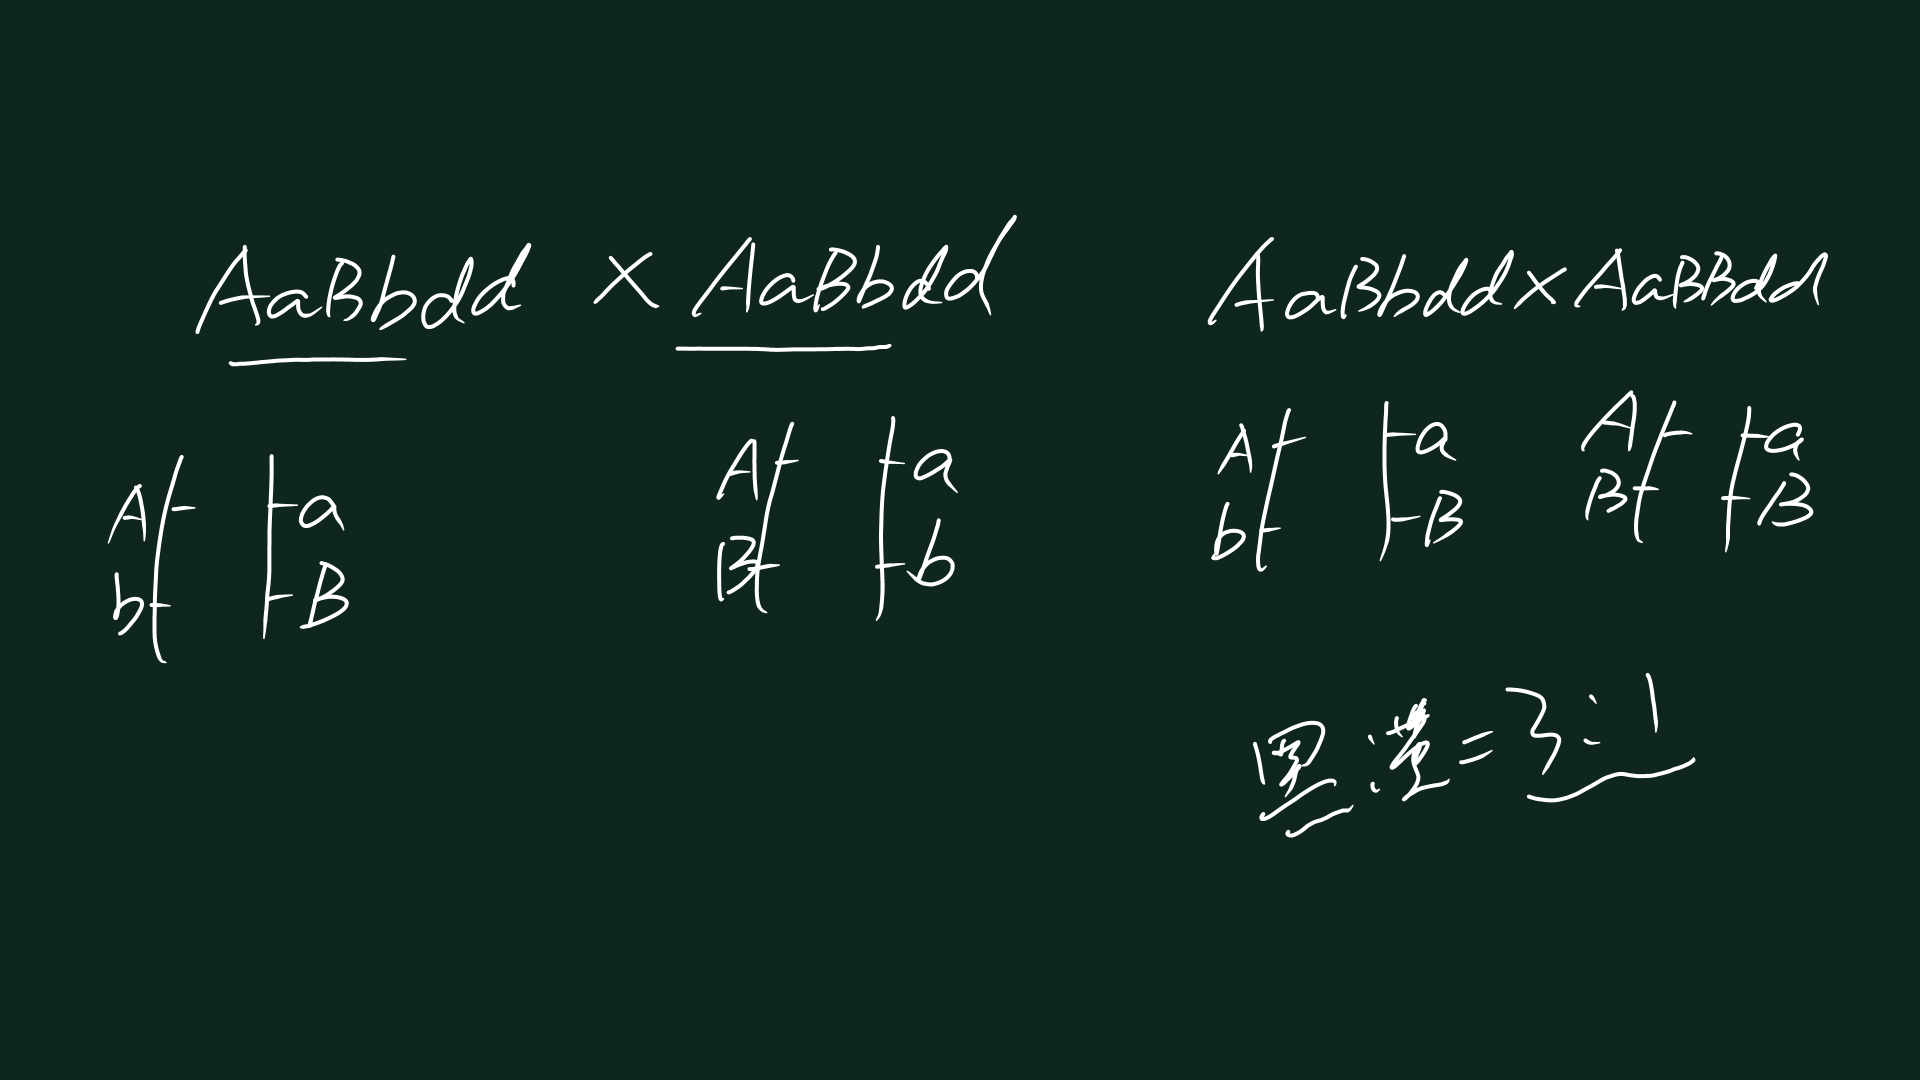 AaBbdd × AaBbdd
AaBbdd×AaBBdd
A a
b B
A a
B b
A a
b B
A a
B B
黑:黄=3:1